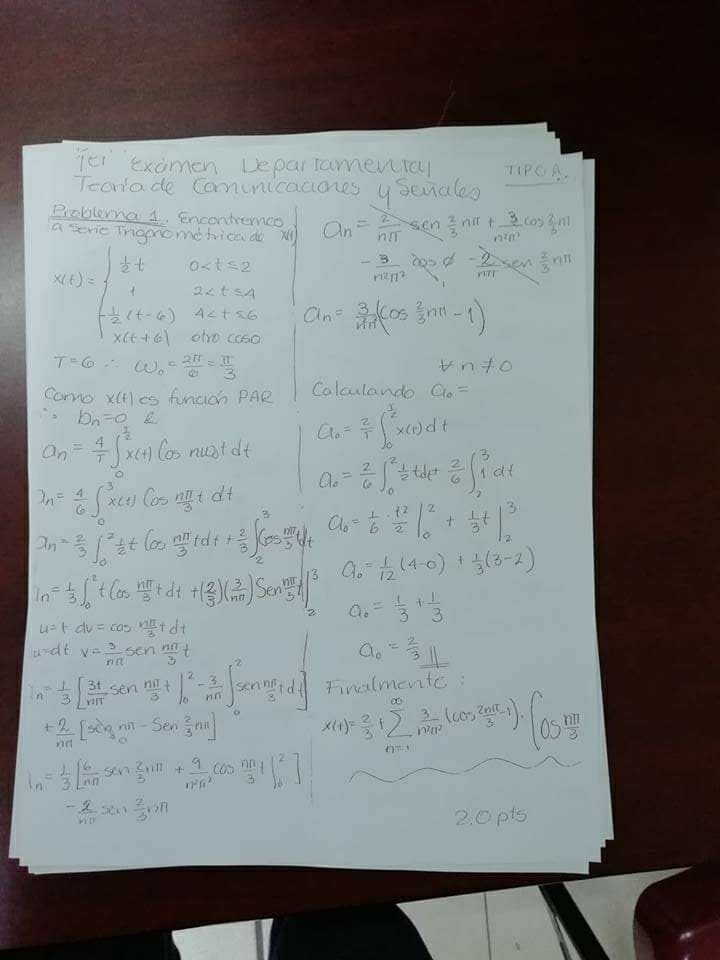 1er Exámen Departamental
Teoría de Comunicaciones y Señales
TIPO A.
Problema 1. Encontremos
la serie Trigonométrica de x(t)
x(t) = { 1/2 t 0<t≤2
1 2<t≤4
-1/2 (t-6) 4<t≤6
x(t+6) otro caso
T=6 ∴ ω₀ = 2π/6 = π/3
Como x(t) es función PAR
∴ bn=0 &
an = 4/T ∫₀^{T/2} x(t) Cos nω₀t dt
an = 4/6 ∫₀³ x(t) Cos nπ/3 t dt
an = 2/3 ∫₀² 1/2 t Cos nπ/3 t dt + 2/3 ∫₂³ Cos nπ/3 t dt
an = 1/3 ∫₀² t Cos nπ/3 t dt + (2/3)(3/nπ) Sen nπ/3 t |₂³
u=t dv = cos nπ/3 t dt
du=dt v= 3/nπ sen nπ/3 t
an = 1/3 [3t/nπ sen nπ/3 t |₀² - 3/nπ ∫₀² sen nπ/3 t dt]
+ 2/nπ [sen nπ - Sen 2/3 nπ]
0
an = 1/3 [6/nπ sen 2/3 nπ + 9/n²π² cos nπ/3 t |₀²]
- 2/nπ sen 2/3 nπ
an = 2/nπ sen 2/3 nπ + 3/n²π² cos 2/3 nπ
- 3/n²π² cos 0 - 2/nπ sen 2/3 nπ
1
an = 3/n²π² (cos 2/3 nπ - 1)
∀ n ≠ 0
Calculando a₀ =
a₀ = 2/T ∫₀^{T/2} x(t) dt
a₀ = 2/6 ∫₀² 1/2 t dt + 2/6 ∫₂³ 1 dt
a₀ = 1/6 · t²/2 |₀² + 1/3 t |₂³
a₀ = 1/12 (4-0) + 1/3 (3-2)
a₀ = 1/3 + 1/3
a₀ = 2/3
Finalmente :
x(t) = 2/3 + ∑_{n=1}^{∞} 3/n²π² (cos 2nπ/3 - 1) · Cos nπ/3
2.0 pts